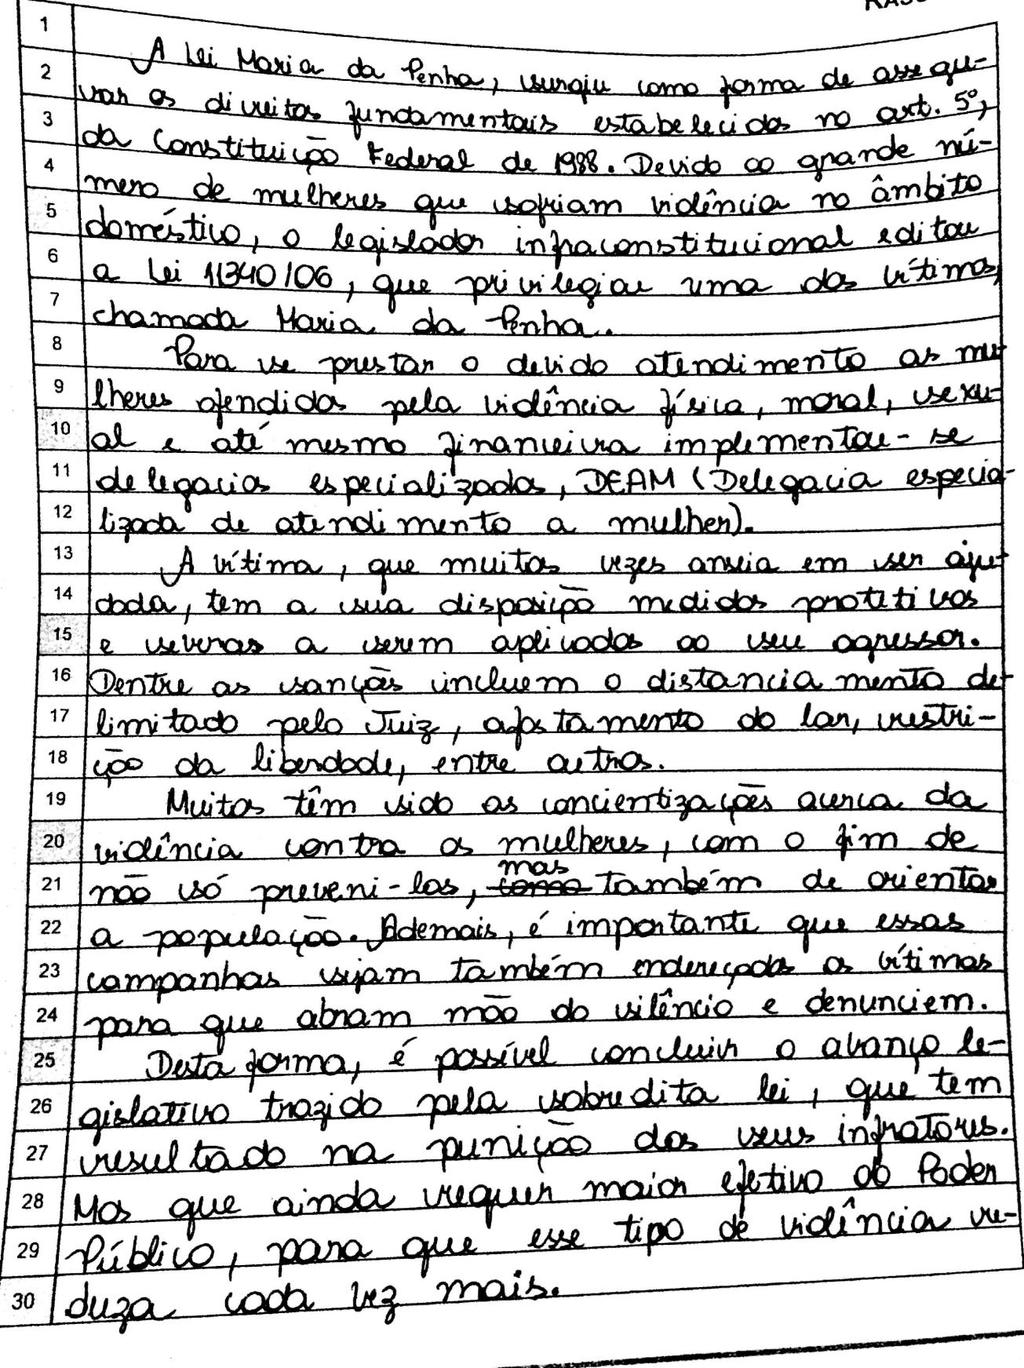 1
2 A Lei Maria da Penha, surgiu como forma de assegu-
3 rar os direitos fundamentais estabelecidos no art. 5º,
4 da Constituição Federal de 1988. Devido ao grande nú-
5 mero de mulheres que sofriam violência no âmbito
6 doméstico, o legislador infraconstitucional editou
7 a Lei 11340/06, que privilegiou uma das vítimas,
8 chamada Maria da Penha.
9 Para se prestar o devido atendimento as mu-
10 lheres ofendidas pela violência física, moral, sexu-
11 al e até mesmo financeira implementou-se
12 delegacias especializadas, DEAM (Delegacia especia-
13 lizada de atendimento a mulher).
14 A vítima, que muitas vezes anseia em ser aju-
15 dada, tem a sua disposição medidas protetivas
16 e severas a serem aplicadas ao seu agressor.
17 Dentre as sanções incluem o distanciamento de-
18 limitado pelo Juiz, afastamento do lar, restri-
19 ção da liberdade, entre outros.
20 Muitas têm sido as concientizações acerca da
21 violência contra as mulheres, com o fim de
22 não só preveni-las, como mas também de orientar
23 a população. Ademais, é importante que essas
24 campanhas sejam também endereçadas as vítimas
25 para que abram mão do silêncio e denunciem.
26 Desta forma, é possível concluir o avanço le-
27 gislativo trazido pela sobredita lei, que tem
28 resultado na punição dos seus infratores.
29 Mas que ainda requer maior efetivo do Poder
30 Público, para que esse tipo de violência re-
duza cada vez mais.